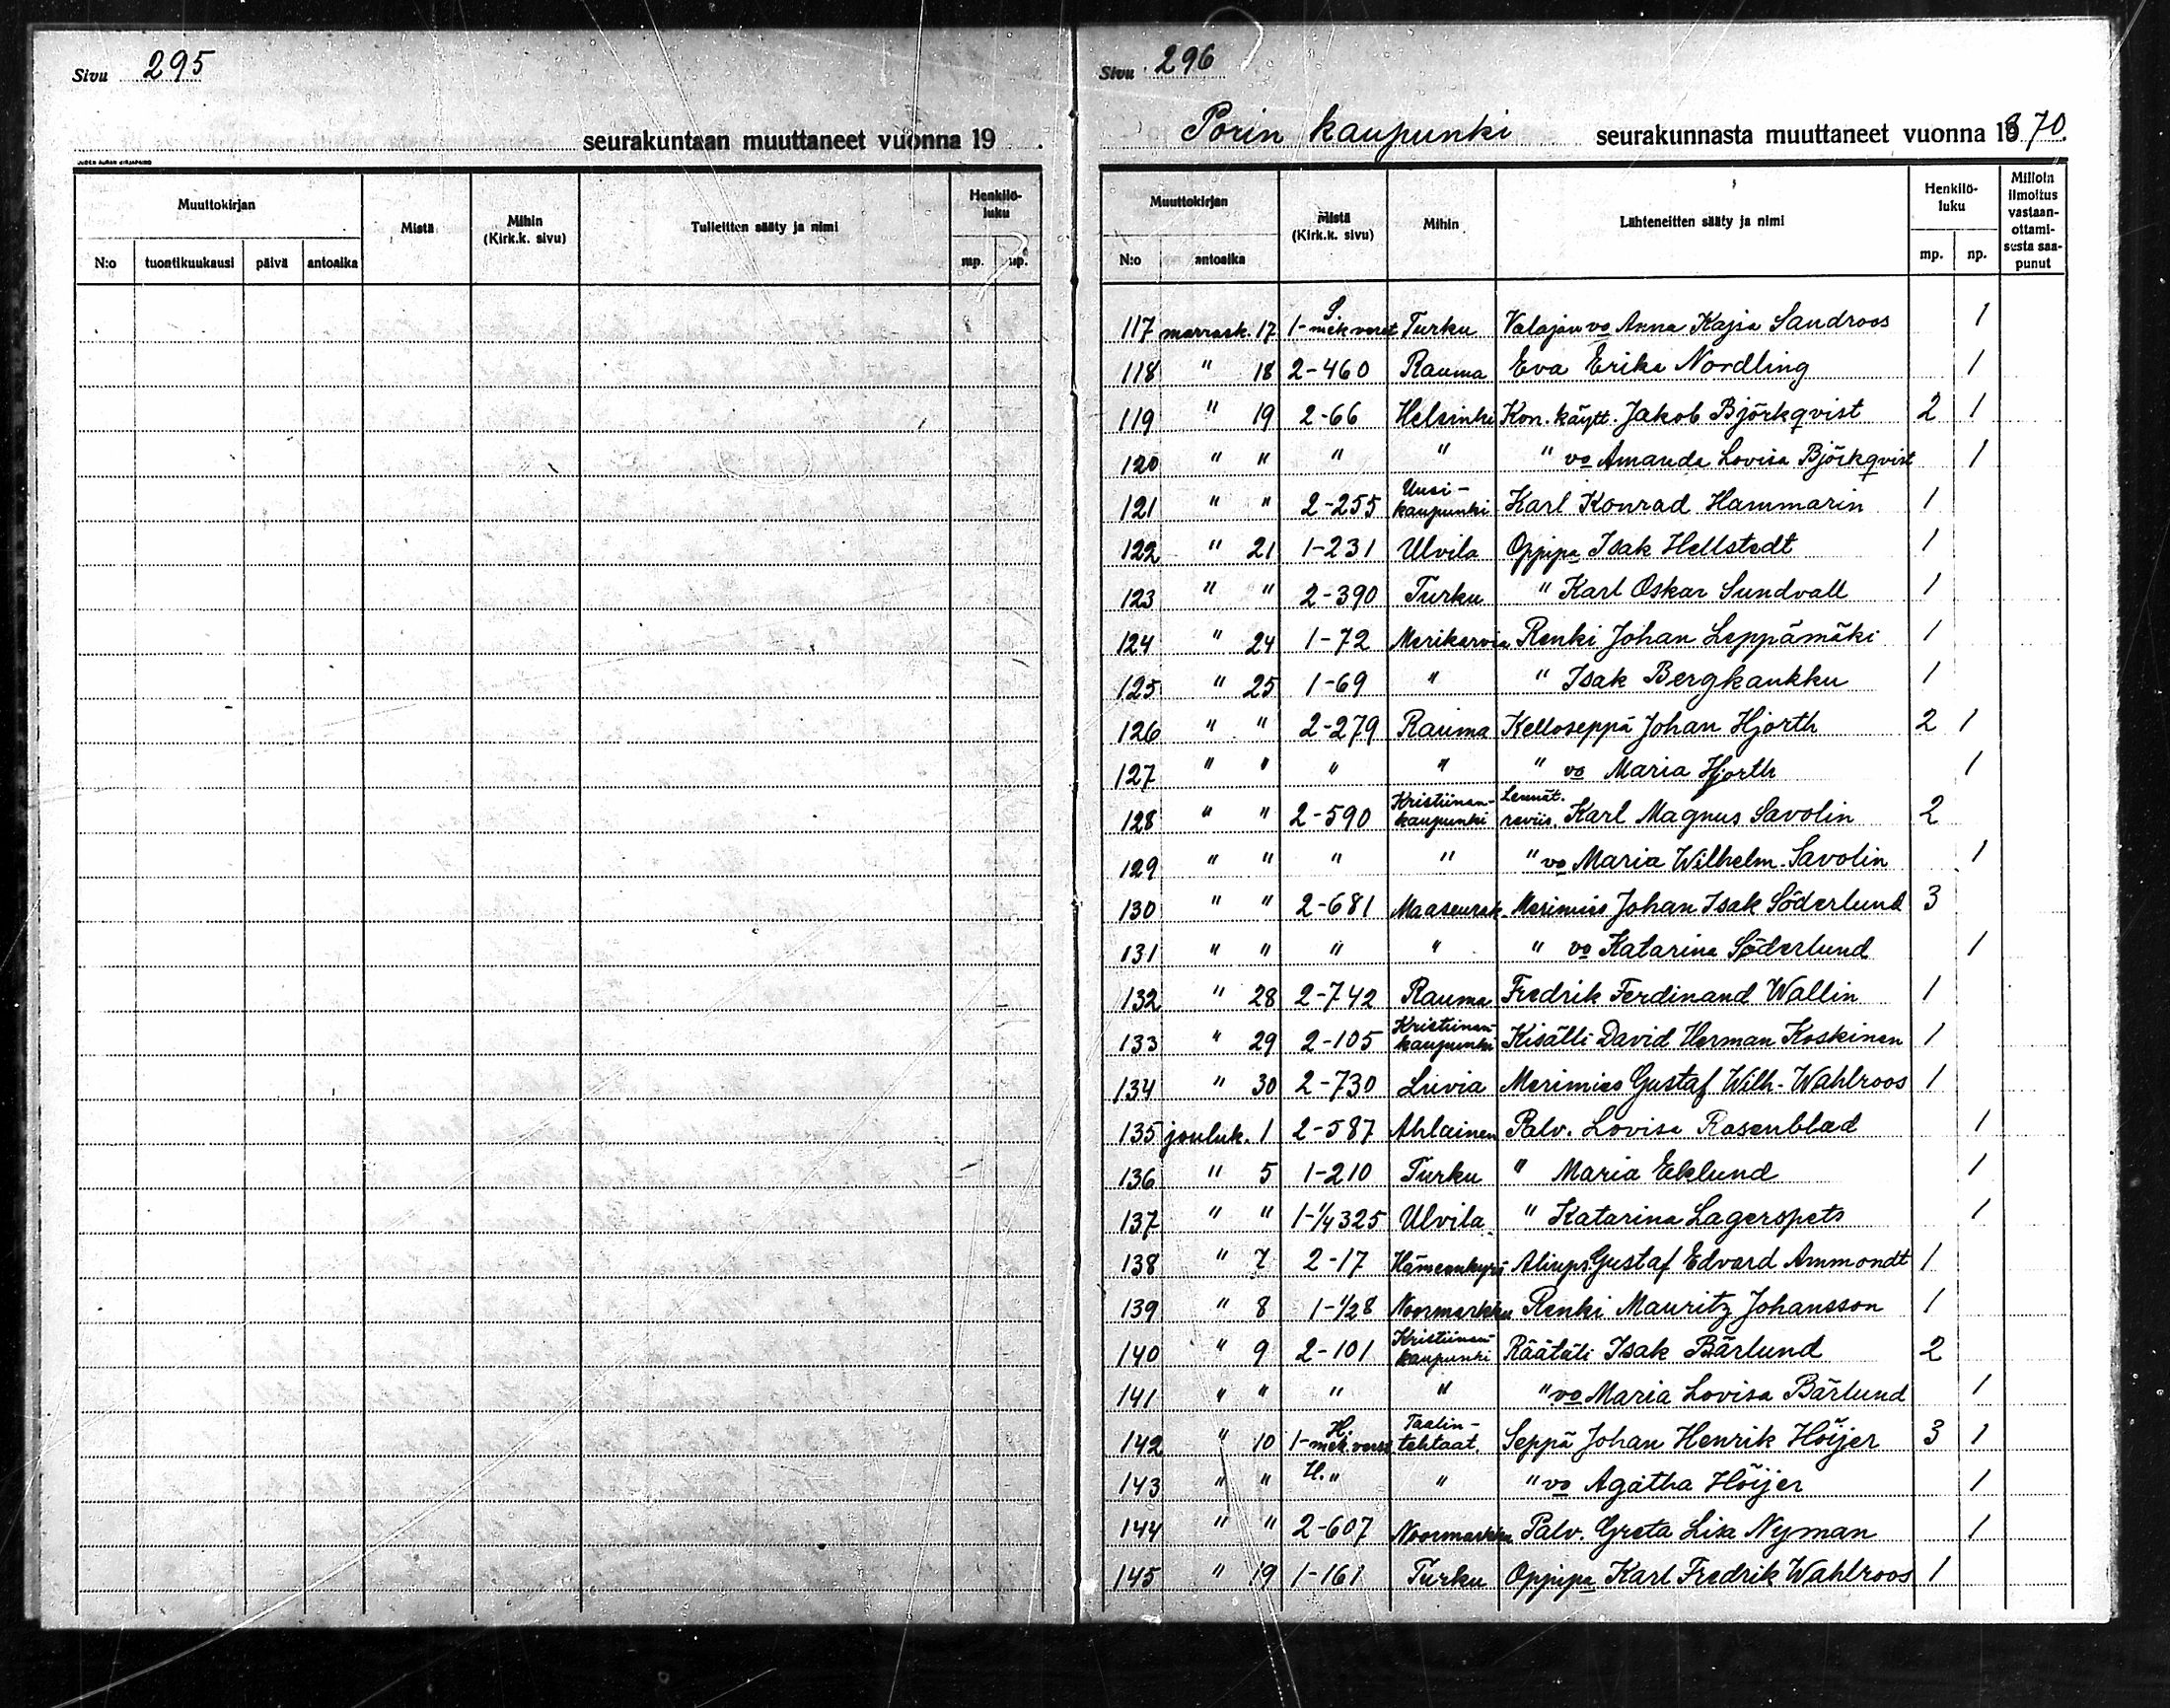 Sivu 295
seurakuntaan muuttaneet vuonna 19 .
Muuttokirjan
Mistä
Mihin
(Kirk.k. sivu)
Tulleitten sääty ja nimi
Henkilö-
luku
N:o tuontikuukausi päivä antoaika mp. np.
Sivu 296
Porin kaupunki seurakunnasta muuttaneet vuonna 1870.
Muuttokirjan
Mistä
(Kirk.k. sivu)
Mihin
Lähteneitten sääty ja nimi
Henkilö-
luku
Milloin
ilmoitus
vastaan-
ottami-
sesta saa-
punut
N:o antoaika mp. np.
S.
117 marrask. 17 1-mek verst Turku Valajan vo Anna Kajsa Sandroos 1
118 " 18 2-460 Rauma Eva Erika Nordling 1
119 " 19 2-66 Helsinki Kon. käytt. Jakob Björkqvist 2 1
120 " " " " " vo Amanda Lovisa Björkqvist 1
121 " " 2-255 Uusi-kaupunki Karl Konrad Hammarin 1
122 " 21 1-231 Ulvila Oppipa Isak Hellstedt 1
123 " " 2-390 Turku " Karl Oskar Sundvall 1
124 " 24 1-72 Merikarvia Renki Johan Leppämäki 1
125 " 25 1-69 " " Isak Bergkaukku 1
126 " " 2-279 Rauma Kelloseppä Johan Hjorth 2 1
127 " " " " " vo Maria Hjorth 1
128 " " 2-590 Kristiinan-kaupunki Lennät. reviis. Karl Magnus Savolin 2
129 " " " " " vo Maria Wilhelm. Savolin 1
130 " " 2-681 Maaseurak. Merimies Johan Isak Söderlund 3
131 " " " " " vo Katarina Söderlund 1
132 " 28 2-742 Rauma Fredrik Ferdinand Wallin 1
133 " 29 2-105 Kristiinan-kaupunki Kisälli David Herman Koskinen 1
134 " 30 2-730 Luvia Merimies Gustaf Wilh. Wahlroos 1
135 jouluk. 1 2-587 Ahlainen Palv. Lovisa Rosenblad 1
136 " 5 1-210 Turku " Maria Eklund 1
137 " " 1-1/4 325 Ulvila " Katarina Lagerspets 1
138 " 7 2-17 Hämeenkyrö Aliups. Gustaf Edvard Ammondt 1
139 " 8 1-1/28 Noormarkku Renki Mauritz Johansson 1
140 " 9 2-101 Kristiinan-kaupunki Räätäli Isak Bärlund 2
141 " " " " " vo Maria Lovisa Bärlund 1
H.
142 " 10 1-mek verst Taalin-tehtaat. Seppä Johan Henrik Höijer 3 1
143 " " H. " " " vo Agatha Höijer 1
144 " " 2-607 Noormarkku Palv. Greta Lisa Nyman 1
145 " 19 1-161 Turku Oppipa Karl Fredrik Wahlroos 1